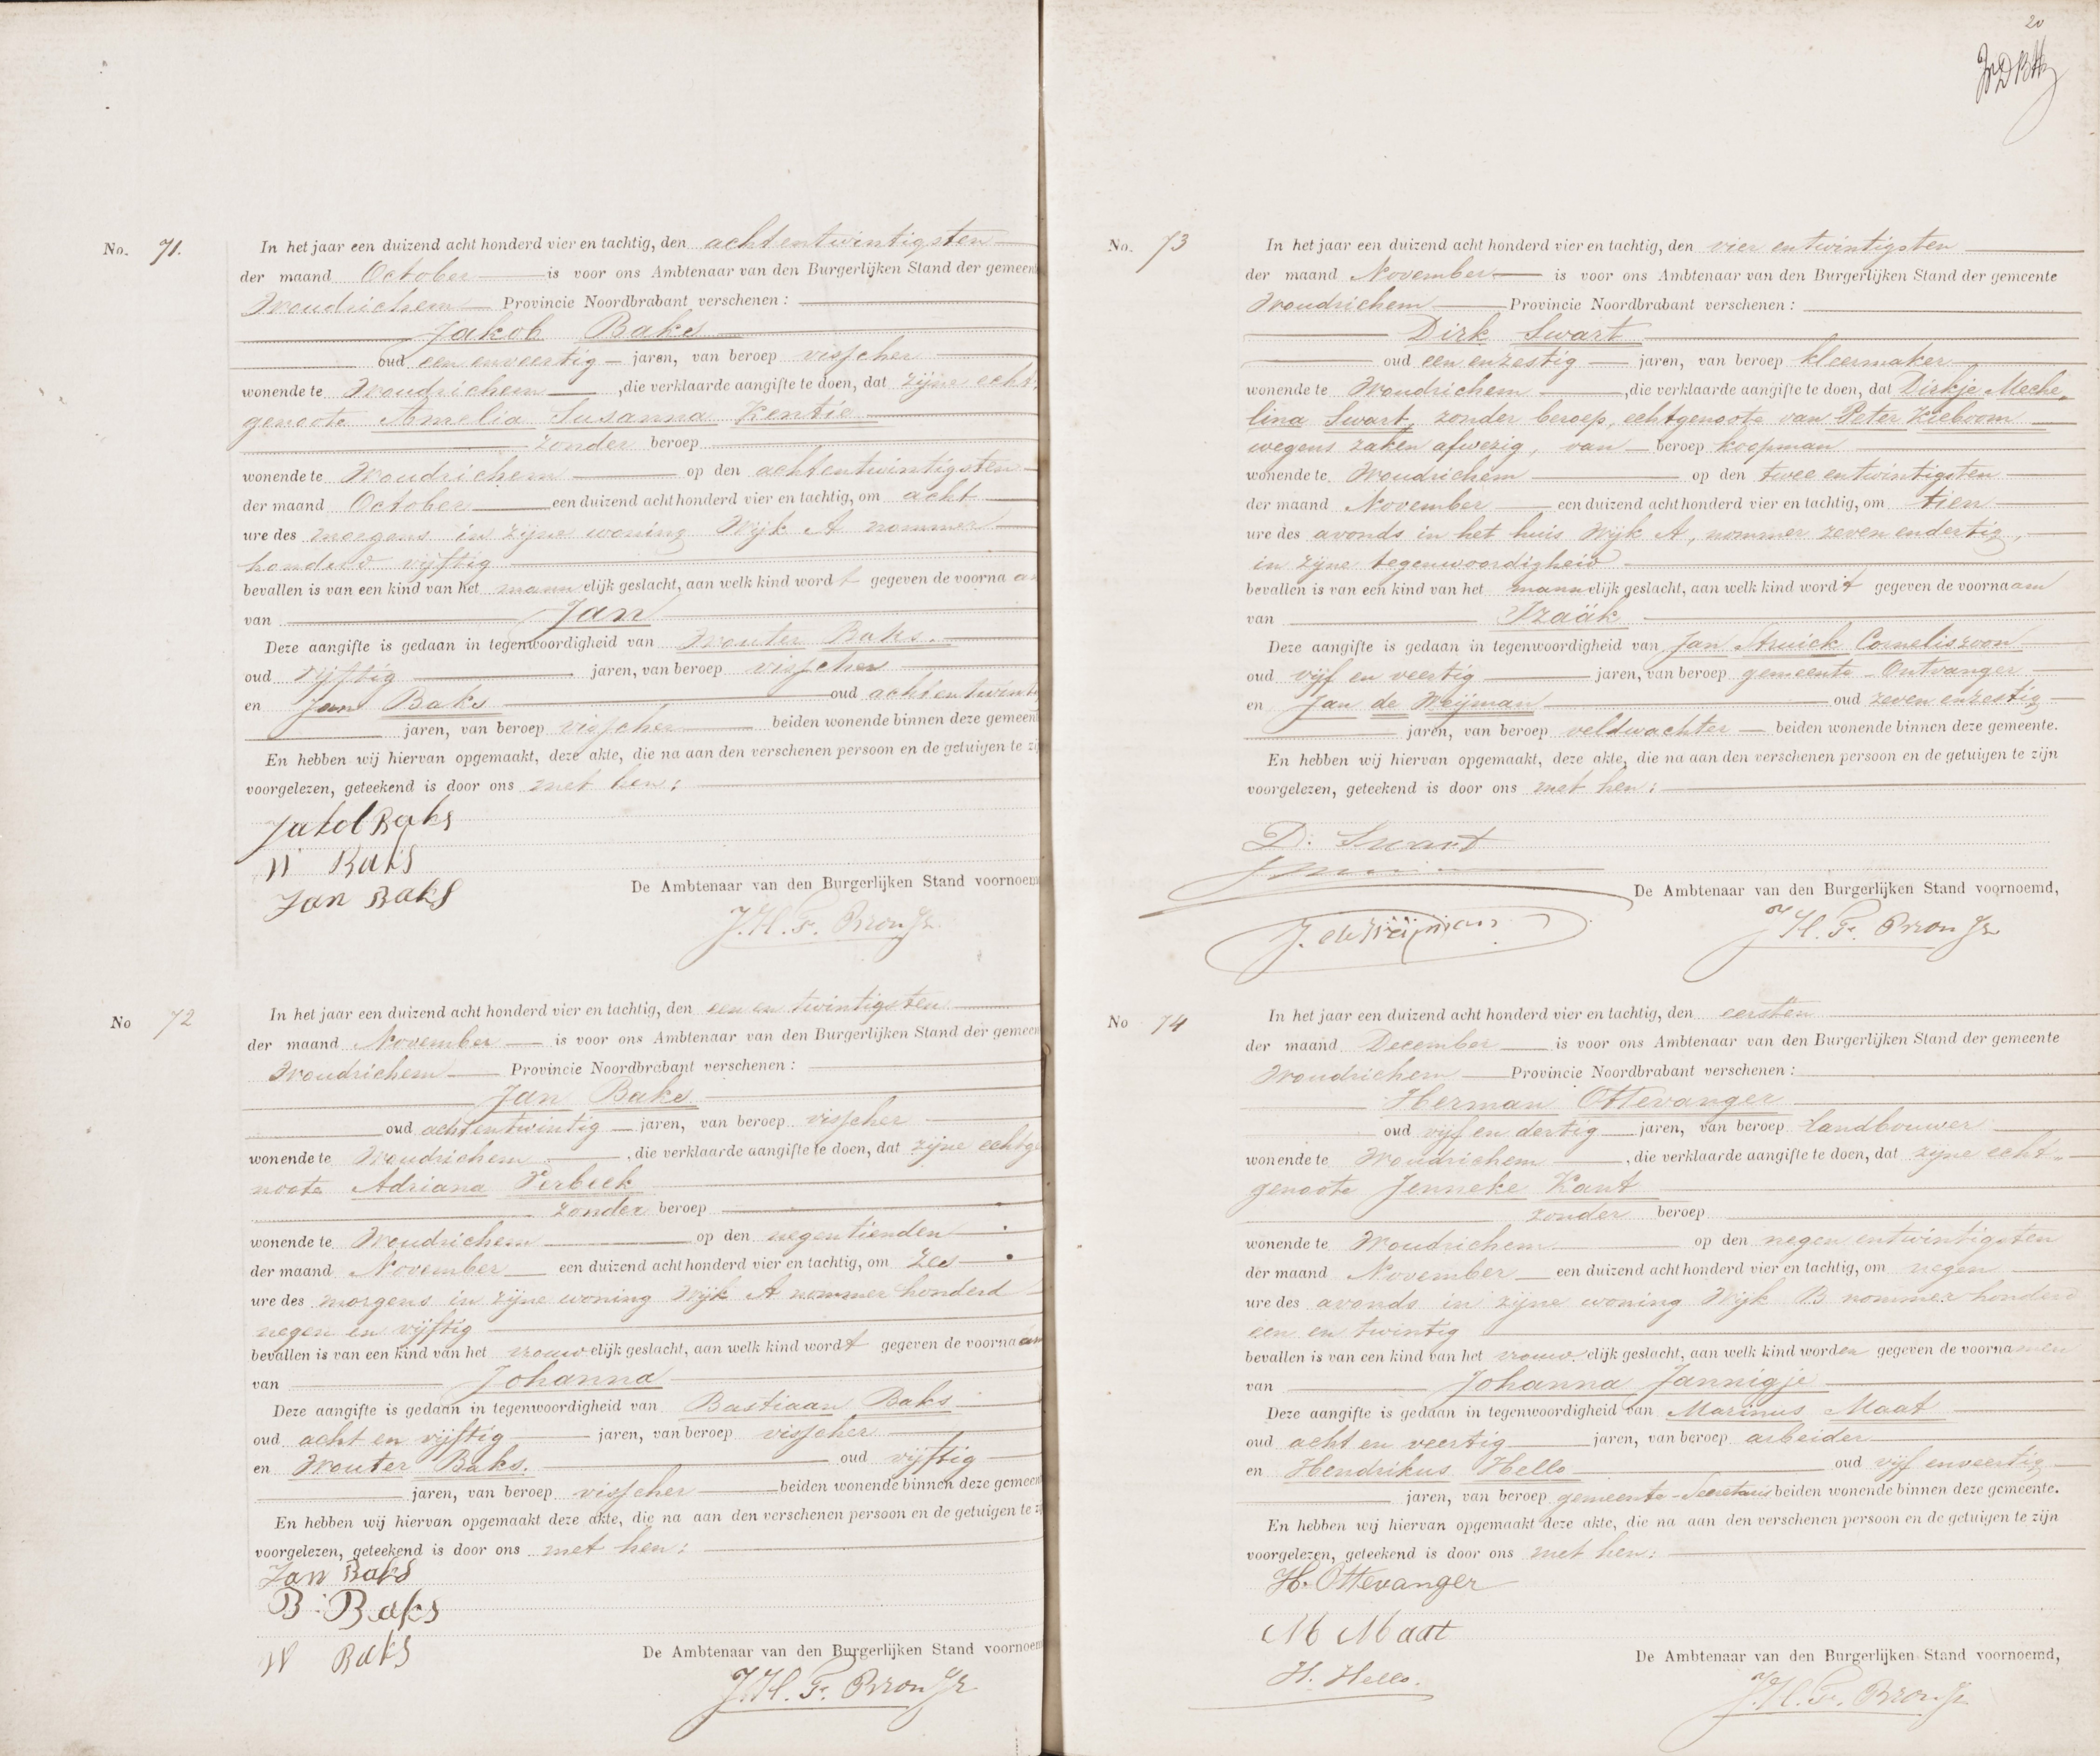 No. 71.
In het jaar een duizend acht honderd vier en tachtig, den achtentwintigsten
der maand October is voor ons Ambtenaar van den Burgerlijken Stand der gemeen
Woudrichem Provincie Noordbrabant verschenen:
Jakob Baks
oud een enveertig jaren, van beroep visscher
wonende te Woudrichem, die verklaarde aangifte te doen, dat zijne echt
genoote Amelia Susanna Kentie
zonder beroep
wonende te Woudrichem op den achtentwintigsten
der maand October een duizend acht honderd vier en tachtig, om acht
ure des morgens in zijne woning Wijk A nommer
honderd vijftig
bevallen is van een kind van het mannelijk geslacht, aan welk kind wordt gegeven de voorna a
van Jan
Deze aangifte is gedaan in tegenwoordigheid van Wouter Baks.
oud vijftig jaren, van beroep visscher
en Jan Baks oud achtentwint
jaren, van beroep visscher beiden wonende binnen deze gemeen
En hebben wij hiervan opgemaakt, deze akte, die na aan den verschenen persoon en de getuigen te zij
voorgelezen, geteekend is door ons met hen:
Jakob Baks
W Baks
Jan Baks
De Ambtenaar van den Burgerlijken Stand voornoem
J.H.F. Bron Jr.
No 72
In het jaar een duizend acht honderd vier en tachtig, den een en twintigsten
der maand November is voor ons Ambtenaar van den Burgerlijken Stand der gemeen
Woudrichem Provincie Noordbrabant verschenen:
Jan Baks
oud achtentwintig jaren, van beroep visscher
wonende te Woudrichem, die verklaarde aangifte te doen, dat zijne echtge
noote Adriana Verbeek
zonder beroep
wonende te Woudrichem op den negentienden
der maand November een duizend acht honderd vier en tachtig, om zes
ure des morgens in zijne woning Wijk A nommer honderd
negen en vijftig
bevallen is van een kind van het vrouwelijk geslacht, aan welk kind wordt gegeven de voornaam
van Johanna
Deze aangifte is gedaan in tegenwoordigheid van Bastiaan Baks
oud acht en vijftig jaren, van beroep visscher
en Wouter Baks. oud vijftig
jaren, van beroep visscher beiden wonende binnen deze gemeen
En hebben wij hiervan opgemaakt deze akte, die na aan den verschenen persoon en de getuigen te z
voorgelezen, geteekend is door ons met hen:
Jan Baks
B: Baks
W Baks
De Ambtenaar van den Burgerlijken Stand voornoem
J.H.F. Bron Jr
20
No. 73
In het jaar een duizend acht honderd vier en tachtig, den vier en twintigsten
der maand November is voor ons Ambtenaar van den Burgerlijken Stand der gemeente
Woudrichem Provincie Noordbrabant verschenen:
Dirk Swart
oud een enzestig jaren, van beroep kleermaker
wonende te Woudrichem, die verklaarde aangifte te doen, dat Dirkje Meche
lina Swart, zonder beroep, echtgenoote van Peter Kieboom
wegens zaken afwezig, van beroep koopman
wonende te Woudrichem op den twee entwintigsten
der maand November een duizend acht honderd vier en tachtig, om tien
ure des avonds in het huis Wijk A, nommer zeven endertig,
in zijne tegenwoordigheid
bevallen is van een kind van het mannelijk geslacht, aan welk kind wordt gegeven de voornaam
van Izaäk
Deze aangifte is gedaan in tegenwoordigheid van Jan Struick Corneliszoon
oud vijf en veertig jaren, van beroep gemeente-Ontvanger
en Jan de Weijman oud zeven enzestig
jaren, van beroep veldwachter beiden wonende binnen deze gemeente.
En hebben wij hiervan opgemaakt, deze akte, die na aan den verschenen persoon en de getuigen te zijn
voorgelezen, geteekend is door ons met hen:
D. Swart
J. de Weijman
De Ambtenaar van den Burgerlijken Stand voornoemd,
J.H.F. Bron Jr
No 74
In het jaar een duizend acht honderd vier en tachtig, den eersten
der maand December is voor ons Ambtenaar van den Burgerlijken Stand der gemeente
Woudrichem Provincie Noordbrabant verschenen:
Herman Ottevanger
oud vijf en dertig jaren, van beroep landbouwer
wonende te Woudrichem, die verklaarde aangifte te doen, dat zijne echt-
genoote Jenneke Kant
zonder beroep
wonende te Woudrichem op den negen entwintigsten
der maand November een duizend acht honderd vier en tachtig, om negen
ure des avonds in zijne woning Wijk B nommer honderd
een en twintig
bevallen is van een kind van het vrouwelijk geslacht, aan welk kind worden gegeven de voornamen
van Johanna Jannigje
Deze aangifte is gedaan in tegenwoordigheid van Marinus Maat
oud acht en veertig jaren, van beroep arbeider
en Hendrikus Hello oud vijf enveertig
jaren, van beroep gemeente-Secretaris beiden wonende binnen deze gemeente.
En hebben wij hiervan opgemaakt deze akte, die na aan den verschenen persoon en de getuigen te zijn
voorgelezen, geteekend is door ons met hen:
H. Ottevanger
M Maat
H. Hello.
De Ambtenaar van den Burgerlijken Stand voornoemd,
J.H.F. Bron Jr